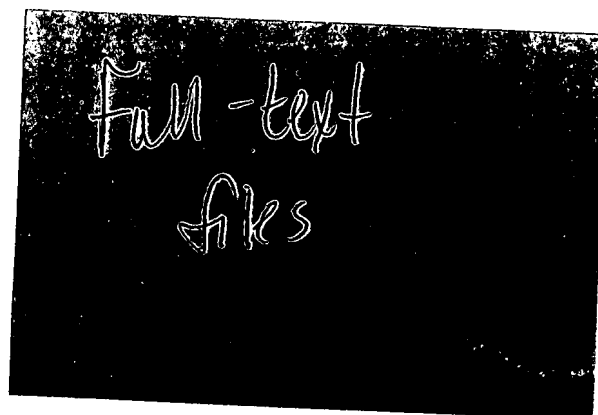 Full-text
files